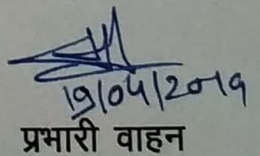 19/04/2019
प्रभारी वाहन